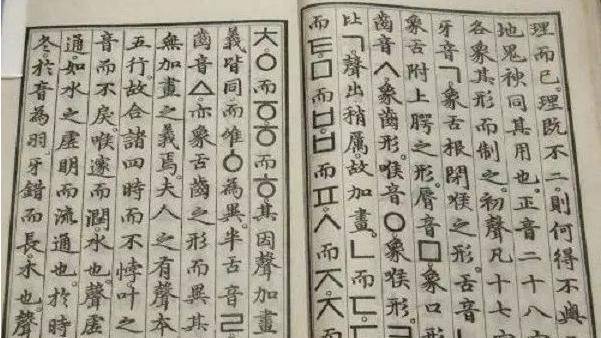 理而已。理既不二。則何得不與
地鬼神同其用也。正音二十八
各象其形而制之。初聲凡十七
牙音ㄱ。象舌根閉喉之形。舌音
象舌附上腭之形。脣音ㅁ。象口形
齒音ㅅ。象齒形。喉音ㅇ。象喉形。
比ㄱ。聲出稍厲。故加畫。ㄴ而ㄷ
而ㅌ。ㅁ而ㅂ。ㅂ而ㅍ。ㅅ而ㅈ。ㅈ而
ㅊ。ㅇ而ㆆ。ㆆ而ㅎ。其因聲加畫
義皆同。而唯ㆁ為異。半舌音ㄹ
齒音ㅿ。亦象舌齒之形而異其
無加畫之義焉。夫人之有聲本
五行。故合諸四時而不悖。叶之
音而不戾。喉邃而潤。水也。聲虛
通。如水之虛明而流通也。於時
冬。於音為羽。牙錯而長。木也。聲